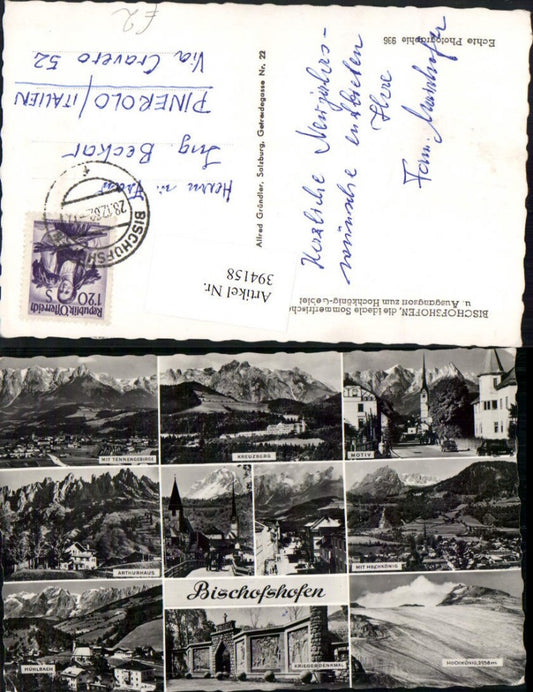 BISCHOFSHOFEN, die ideale Sommerfrische
u. Ausgangsort zum Hochkönig-Gebiet
Herzliche Neujahrs-
wünsche entbieten
Ihre
Fam.
Echte Photographie 936
Alfred Gründler, Salzburg, Getreidegasse Nr. 22
Artikel Nr.
394158
Herrn u.
Ing Beckar
PINEROLO/ITALIEN
Via Cravero 52
£2
BISCHOFSH
28.12.62
Republik Österreich
1.20 S
MIT TENNENGEBIRGE
KREUZBERG
MOTIV
ARTHURHAUS
MIT HOCHKÖNIG
Bischofshofen
MÜHLBACH
KRIEGERDENKMAL
HOCHKÖNIG, 2938 m